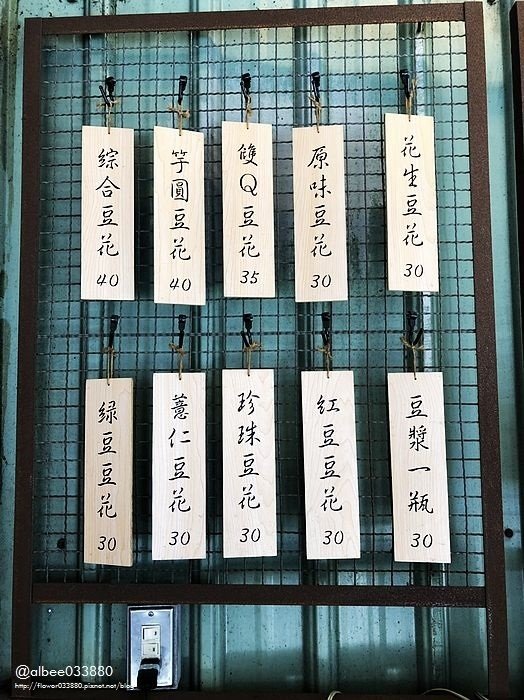 花生豆花 30
原味豆花 30
雙Q豆花 35
芋圓豆花 40
綜合豆花 40
豆漿一瓶 30
紅豆豆花 30
珍珠豆花 30
薏仁豆花 30
绿豆豆花 30
@albee033880
http://flower033880.pixnet.net/blog